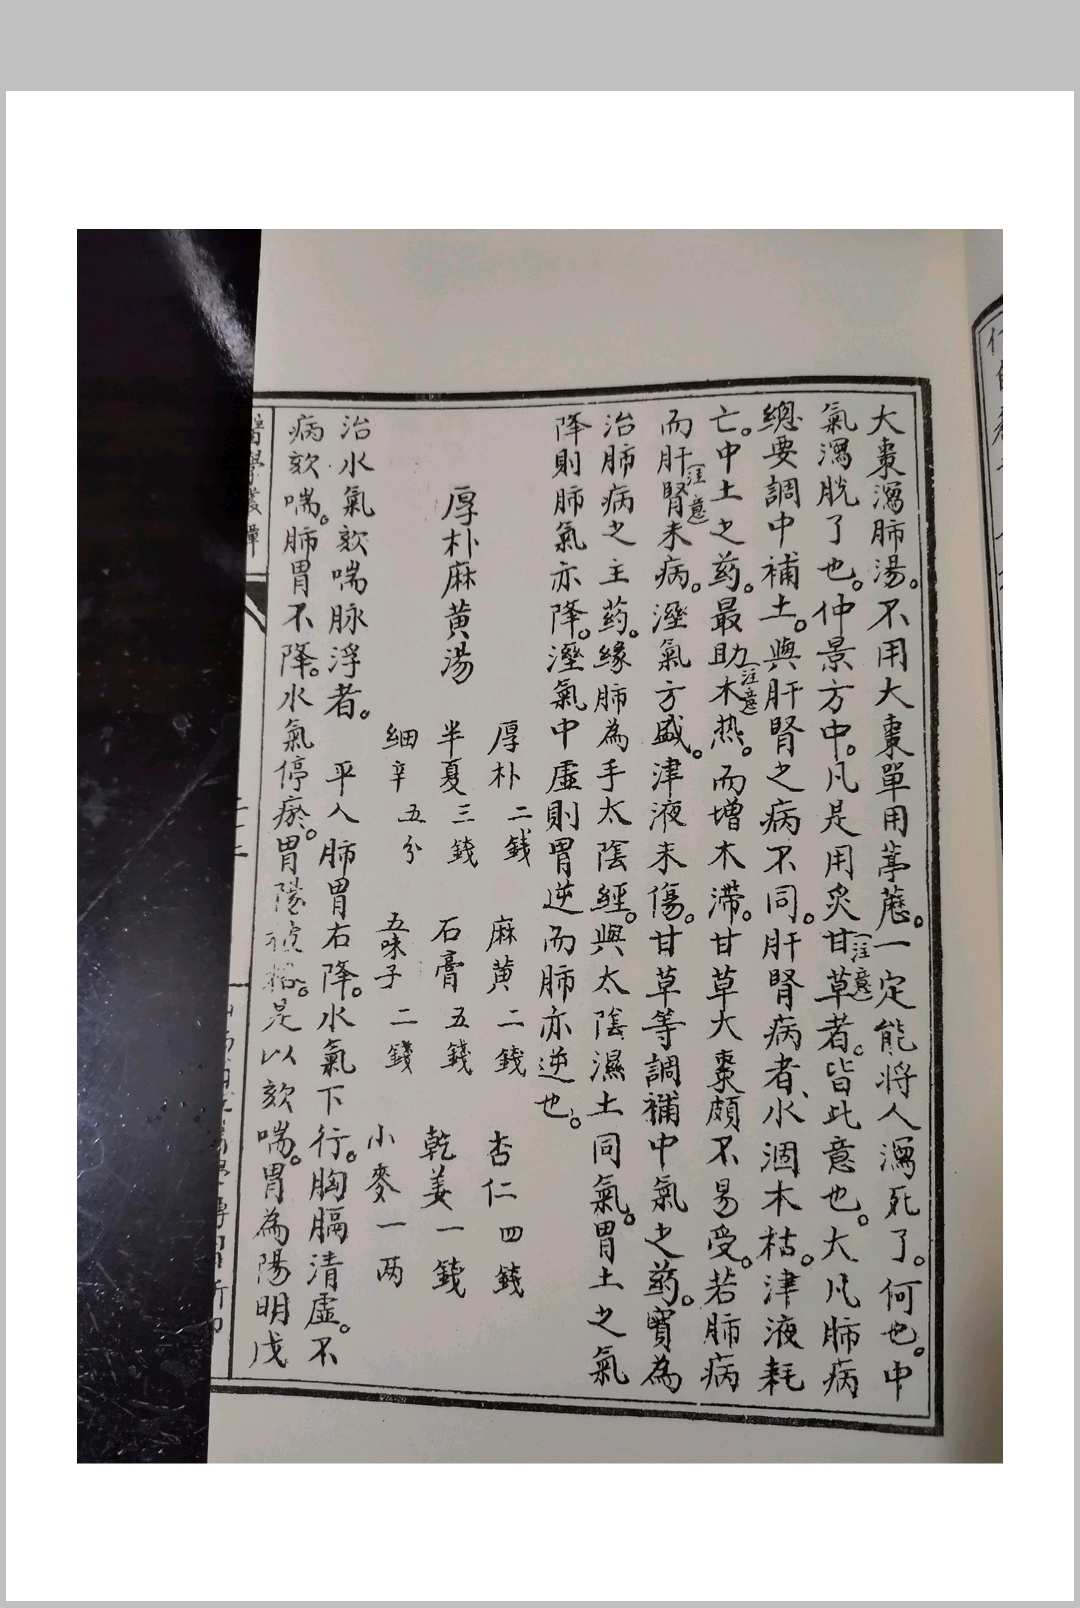 大棗瀉肺湯。不用大棗單用葶藶。一定能將人瀉死了。何也。中
氣瀉脫了也。仲景方中。凡是用炙甘草(注意)者。皆此意也。大凡肺病
總要調中補土。與肝腎之病不同。肝腎病者、水涸木枯。津液耗
亡。中土之药。最助木热(注意)。而增木滞。甘草大棗頗不易受。若肺病
而肝腎(注意)未病。溼氣方盛。津液未傷。甘草等調補中氣之药。實為
治肺病之主药。緣肺為手太陰經。與太陰濕土同氣。胃土之氣
降則肺氣亦降。溼氣中虛則胃逆而肺亦逆也。
厚朴麻黄湯
厚朴二銭 麻黄二錢 杏仁四錢
半夏三錢 石膏五錢 乾姜一錢
細辛五分 五味子二錢 小麥一两
治水氣欬喘脉浮者。 平人肺胃右降。水氣下行。胸膈清虛。不
病欬喘。肺胃不降。水氣停瘀。胃陽 是以欬喘。胃為陽明戊
醫學叢